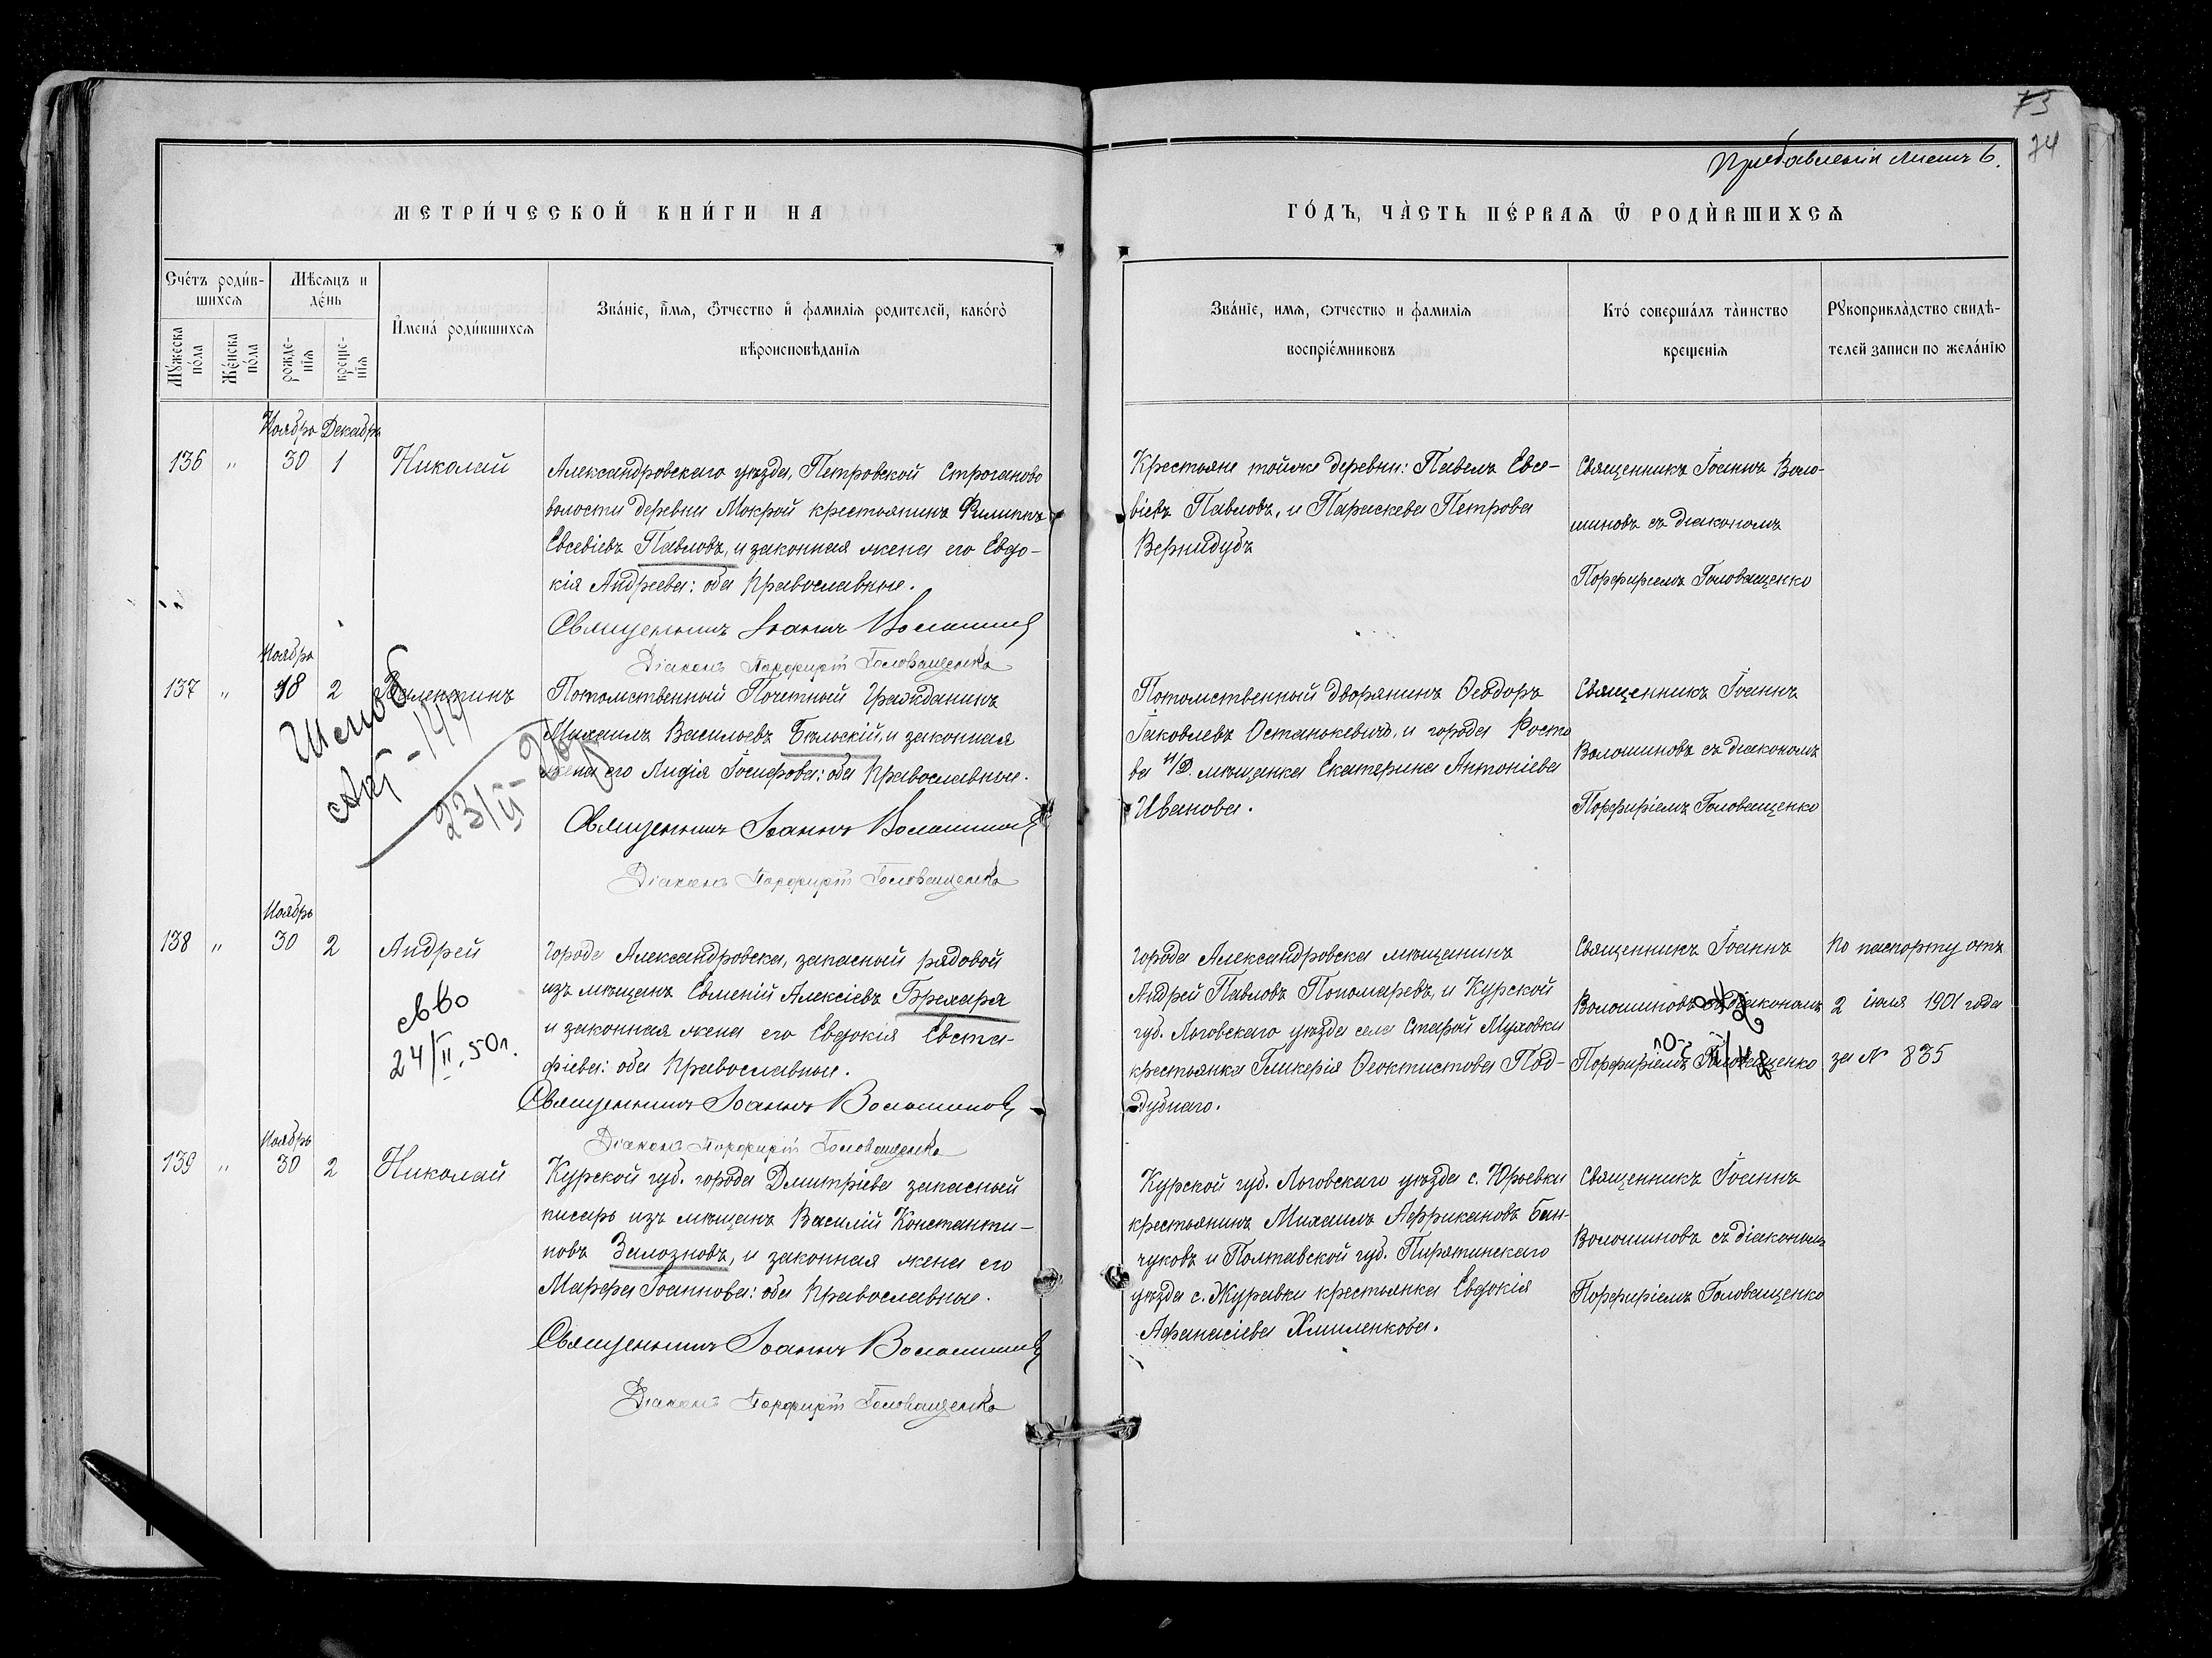 73
74
Прибавленія листъ 6.
МЕТРИ́ЧЕСКОЙ КНИ́ГИ НА
ГО́ДЪ, ЧА̀СТЬ ПЕ́РВАѦ Ѿ РОДЍВШИХСѦ
Счéтъ роди́в-
шихсѧ
Мꙋжеска по́ла
Же́нска по́ла
Мѣсѧцъ и
де́нь
рожде-
нїѧ
креще-
нїѧ
И́мена́ роди́вшихсѧ
Зва́нїе, и́мѧ, ѻ́тчество и́ фамилїѧ родителей, како́гѡ̀
вѣроисповѣ́данїѧ
Зва́нїе, имѧ, ѻтчество и фамилїѧ
воспрїе́мниковъ
Кто́ соверша́лъ та̀инство
крещенїѧ
Рꙋкоприкла̀дство свидѣ-
телей записи по жела́нїю
Ноября Декабря
136 " 30 1 Николай
Александровскаго уѣзда, Петровской Строганово
волости деревни Мокрой крестьянинъ Филиппъ
Евсевіевъ Павловъ, и законная жена его Евдо-
кія Андреева: оба Православные.
Священникъ Іоаннъ Волошинов
Діаконъ Порфирій Головащенко
Крестьяне тойже деревни: Павелъ Евсе-
віевъ Павловъ, и Параскева Петрова
Вернидубъ
Священникъ Іоаннъ Воло-
шиновъ съ діакономъ
Порфиріемъ Головащенко
Ноября
137 " 18 2 Валентинъ
Потомственный Почетный Гражданинъ
Михаилъ Васильевъ Бѣльскій, и законная
жена его Лидія Іосифова: оба Православные.
Священникъ Іоаннъ Волошинов
Діаконъ Порфирій Головащенко
Потомственный дворянинъ Ѳеодоръ
Іаковлевъ Останькевичъ, и города Росто
ва н/Д. мѣщанка Екатерина Антоніева
Иванова.
Священникъ Іоаннъ
Волошиновъ съ діакономъ
Порфиріемъ Головащенко
Ноября
138 " 30 2 Андрей
св-во
24/II, 50г.
города Александровска, запасный рядовой
изъ мѣщанъ Евмений Алексіевъ Брехаря
и законная жена его Евдокія Евста-
фіева: оба Православные.
Священникъ Іоаннъ Волошинов
Діаконъ Порфирій Головащенко
города Александровска мѣщанинъ
Андрей Павловъ Пономаревъ, и Курской
губ. Льговскаго уѣзда села Старой Муховки
крестьянка Гликерія Ѳеоктистова Под-
дубнаго.
Священникъ Іоаннъ
Волошиновъ съ діакономъ
Порфиріемъ Головащенко
По паспорту отъ
2 іюля 1901 года
за № 835
Ноября
139 " 30 2 Николай
Курской губ. города Дмитріева запасный
писарь изъ мѣщанъ Василій Константи-
новъ Залозновъ, и законная жена его
Марфа Іоаннова: оба Православные.
Священникъ Іоаннъ Волошинов
Діаконъ Порфирій Головащенко
Курской губ. Льговскаго уѣзда с. Юрьевки
крестьянинъ Михаилъ Аффрикановъ Бан-
чуковъ и Полтавской губ. Пирятинскаго
уѣзда с. Журавки крестьянка Евдокія
Афанасіева Хмиленкова.
Священникъ Іоаннъ
Волошиновъ съ діакономъ
Порфиріемъ Головащенко